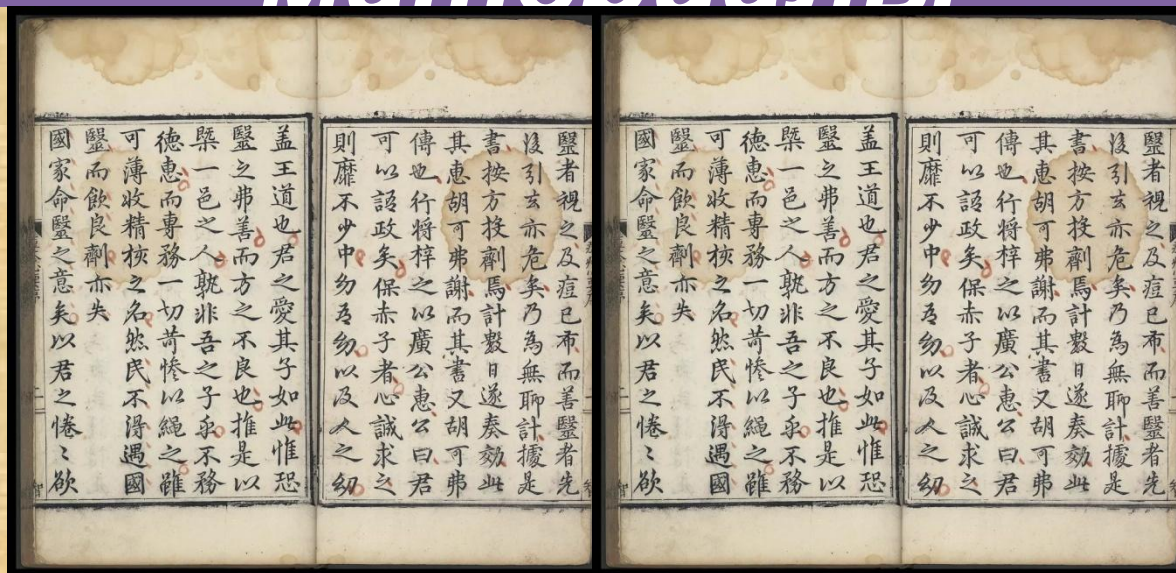 醫者視之及痘已布而善醫者先
後引去亦危矣乃為無聊計據是
書按方投劑焉計數日遂奏効此
其恵胡可弗謝而其書又胡可弗
傳也行将梓之以廣公恵公曰君
可以語政矣保赤子者心誠求之
則靡不少中幼吾幼以及人之幼
盖王道也君之愛其子如此惟恐
醫之弗善而方之不良也推是以
槩一邑之人孰非吾之子乎不務
德恵而專務一切苛惨以繩之雖
可薄收精核之名然民不得遇國
醫而飲良劑亦失
國家命醫之意矣以君之惓〻欲
醫者視之及痘已布而善醫者先
後引去亦危矣乃為無聊計據是
書按方投劑焉計數日遂奏効此
其恵胡可弗謝而其書又胡可弗
傳也行将梓之以廣公恵公曰君
可以語政矣保赤子者心誠求之
則靡不少中幼吾幼以及人之幼
盖王道也君之愛其子如此惟恐
醫之弗善而方之不良也推是以
槩一邑之人孰非吾之子乎不務
德恵而專務一切苛惨以繩之雖
可薄收精核之名然民不得遇國
醫而飲良劑亦失
國家命醫之意矣以君之惓〻欲